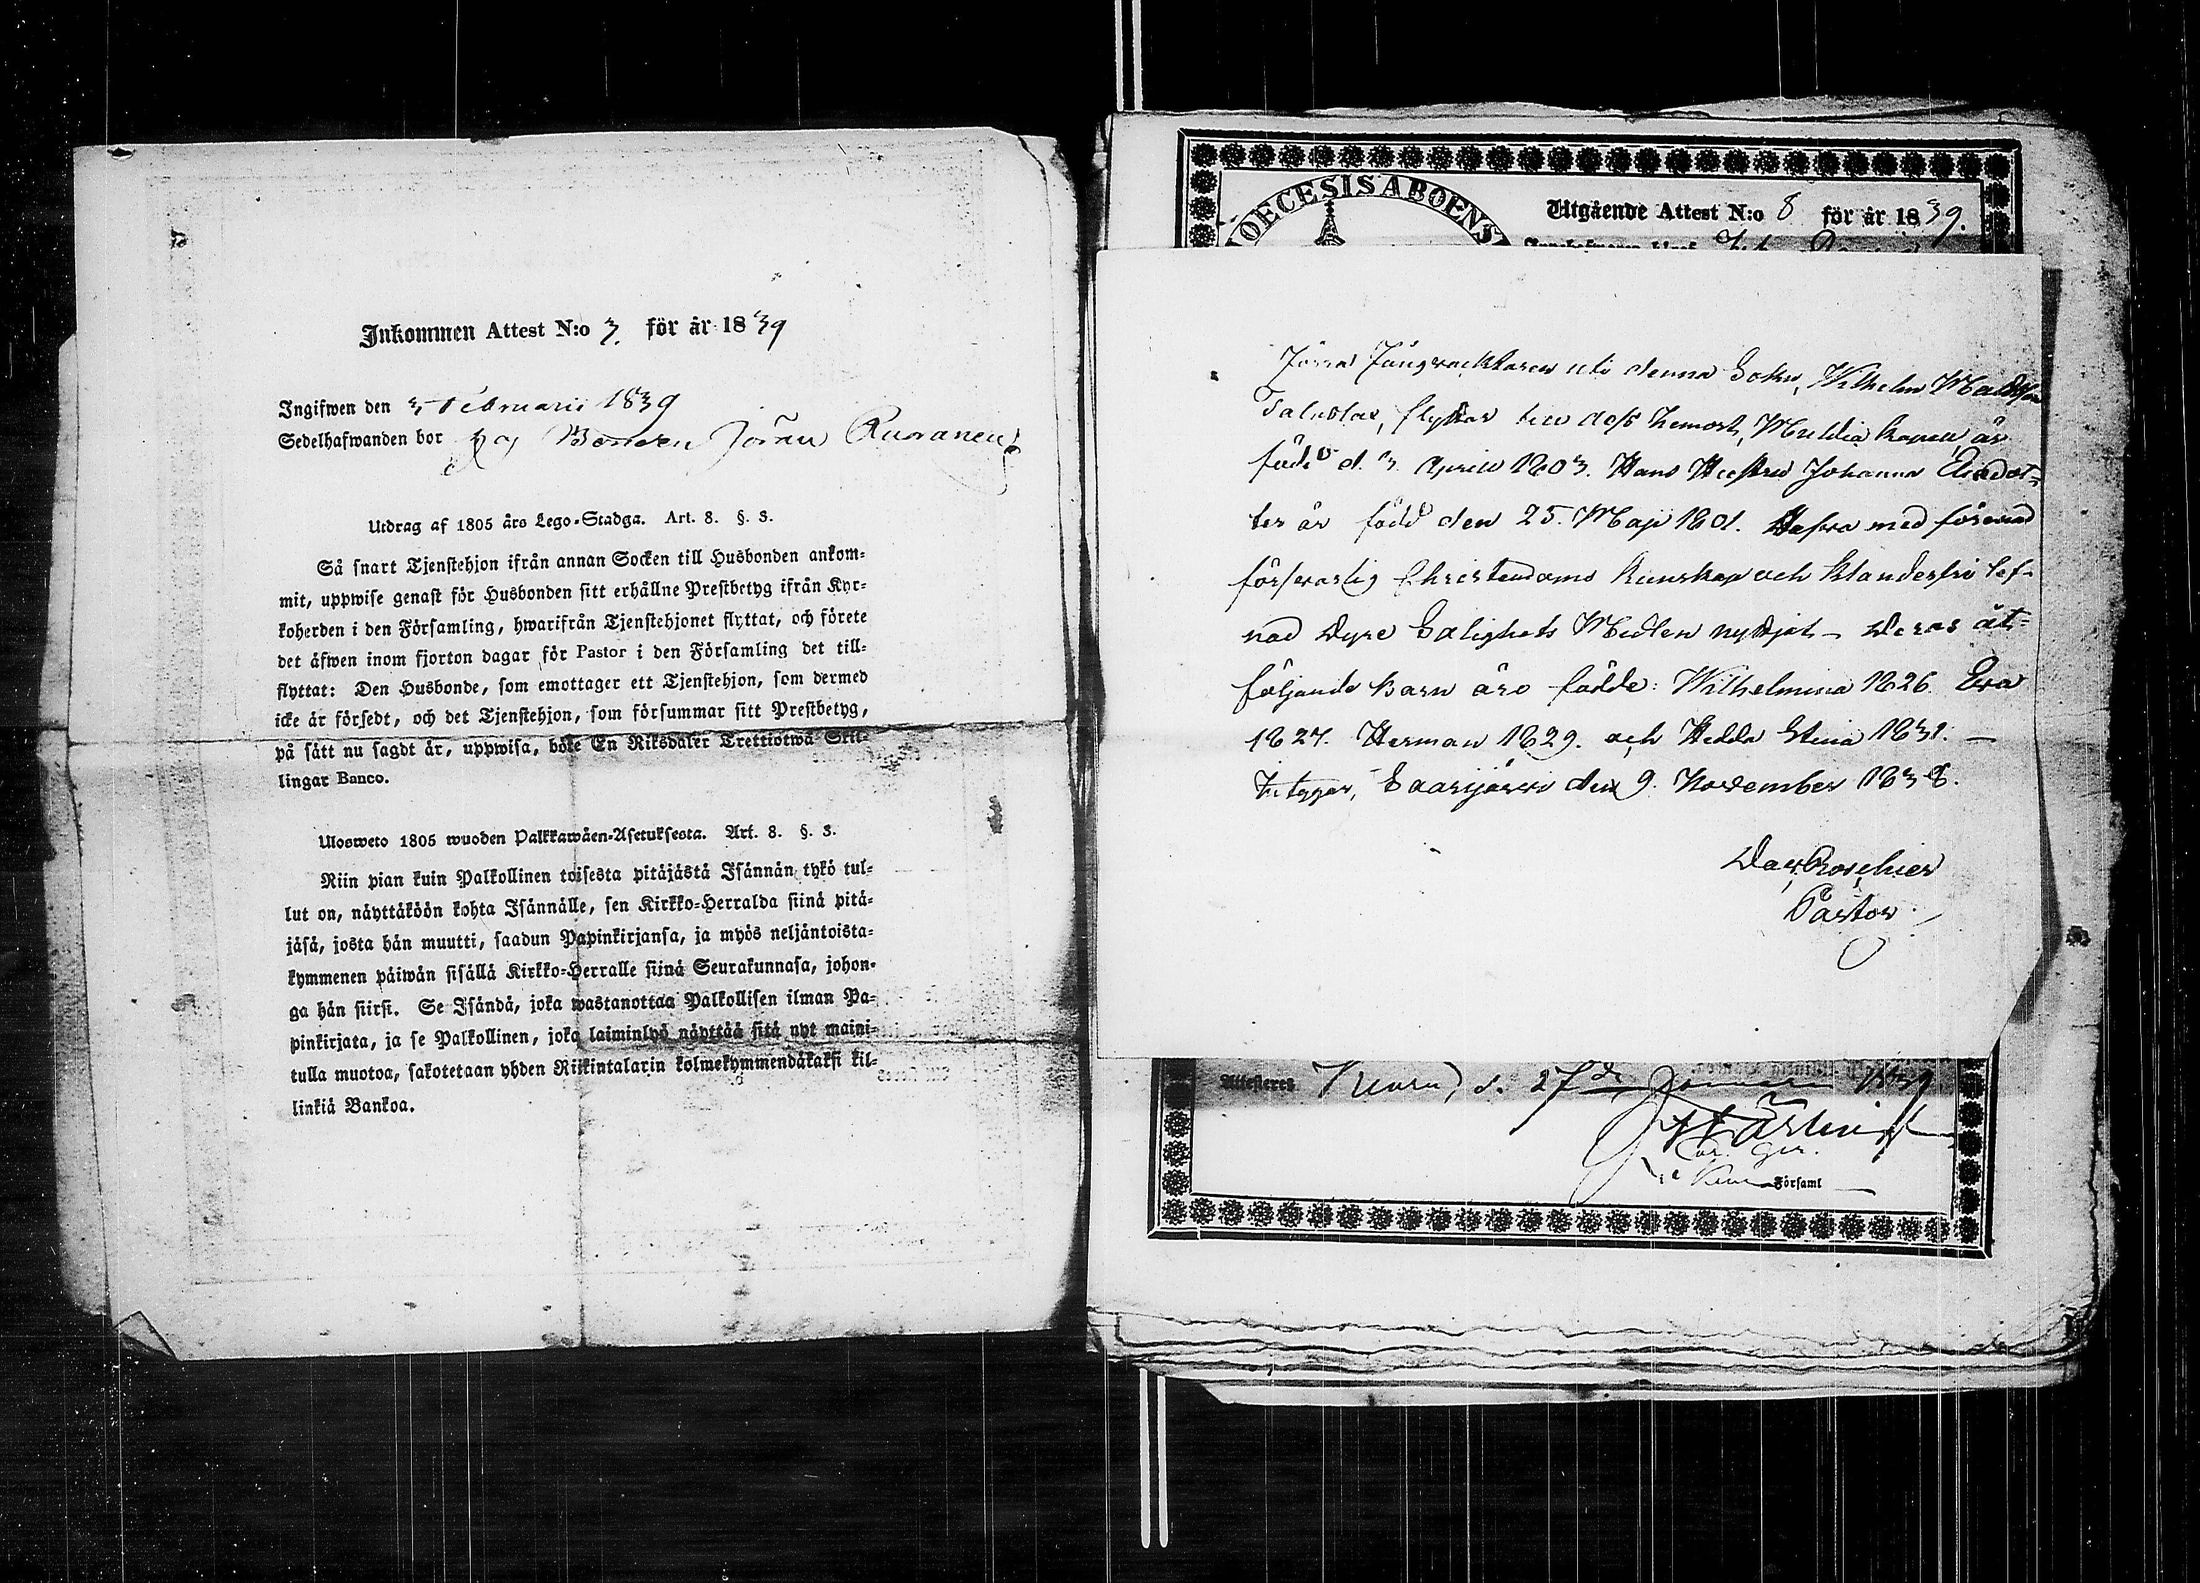 Inkommen Attest N:o 3. för år 1839
Ingifwen den 3 Februarii 1839
Sedelhafwanden bor hos Bonden Jöran Ruuranen
Utdrag af 1805 års Lego-Stadga. Art. 8. §. 3.
Så snart Tjenstehjon ifrån annan Socken till Husbonden ankom-
mit, uppwise genast för Husbonden sitt erhållne Prestbetyg ifrån Kyr-
koherden i den Församling, hwarifrån Tjenstehjonet flyttat, och förete
det äfwen inom fjorton dagar för Pastor i den Församling det till-
flyttat: Den Husbonde, som emottager ett Tjenstehjon, som dermed
icke är försedt, och det Tjenstehjon, som försummar sitt Prestbetyg,
på sätt nu sagdt är, uppwisa, böte En Riksdaler Trettiotwå Skil-
lingar Banco.
Ulosweto 1805 wuoden Palkkawäen-Asetuksesta. Art. 8. §. 3.
Niin pian kuin Palkollinen toisesta pitäjästä Isännän tykö tul-
lut on, näyttäköön kohta Isännälle, sen Kirkko-Herralda siinä pitä-
jäsä, josta hän muutti, saadun Papinkirjansa, ja myös neljäntoista-
kymmenen päiwän sisällä Kirkko-Herralle siinä Seurakunnasa, johon-
ga hän siirsi. Se Isändä, joka wastanottaa Palkollisen ilman Pa-
pinkirjata, ja se Palkollinen, joka laiminlyö näyttää sitä nyt maini-
tulla muotoa, sakotetaan yhden Riikintalarin kolmekymmendäkaksi kil-
linkiä Bankoa.
DIOECESIS ABOENS
Utgående Attest N:o 8 för år 1839.
Förra Fångvacktaren uti denna Sokn, Wilhelm Mattsson
flyttar till dess hemort, Muldia Kapell, är
född d. 3. Aprill 1803. Hans Hustru Johanna Eliædot-
ter är född den 25. Maji 1801. Hafva med förenad
försvarlig Christendoms Kunskap och klanderfri lef-
nad Dyre Salighets Medlen nyttjat – Deras åt-
följande barn äro födde: Wilhelmina 1826. Eva
1827. Herman 1829. och Hedda Stina 1831. –
betygar, Saarijärvi den 9. November 1838.
Dav. Roschier
Pastor.
Attesteres Keuru, d. 27de Januari 1839.
Församl